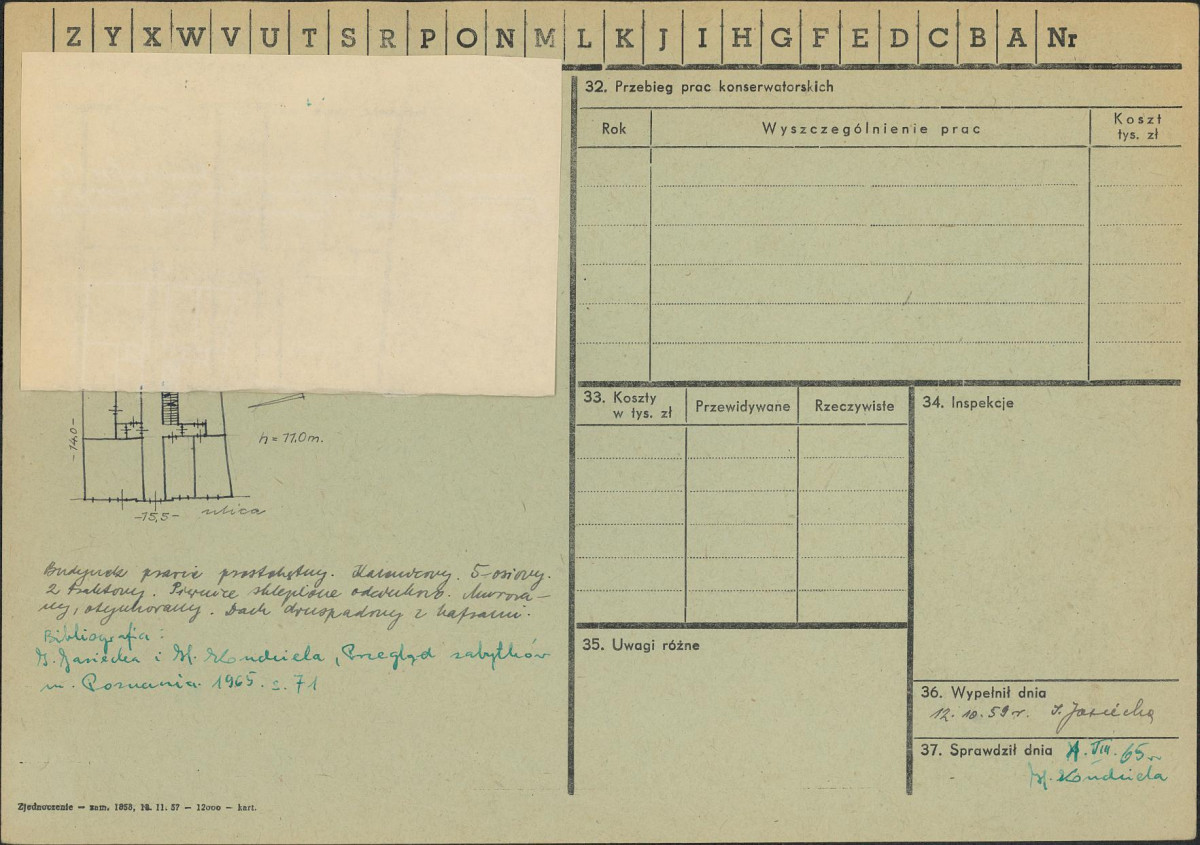 Z Y X W V U T S R P O N M L K J I H G F E D C B A Nr
-14.0-
h = 11.0 m.
-15,5- ulica
Budynek prawie prostokątny. 5-osiowy.
2 traktowy. Piwnice sklepione odcinkowo. Murowa-
ny, otynkowany. Dach dwuspadowy z
Bibliografia:
Jasiecka i Przegląd zabytków
m. Poznania. 1965. s. 71
Zjednoczenie — zam. 1858, 11. 57 — 12000 — kart.
32. Przebieg prac konserwatorskich
Rok Wyszczególnienie prac Koszt
tys. zł
33. Koszty
w tys. zł Przewidywane Rzeczywiste
34. Inspekcje
35. Uwagi różne
36. Wypełnił dnia
12. 10. 59 r. I. Jasiecka
37. Sprawdził dnia VIII. 65 r.